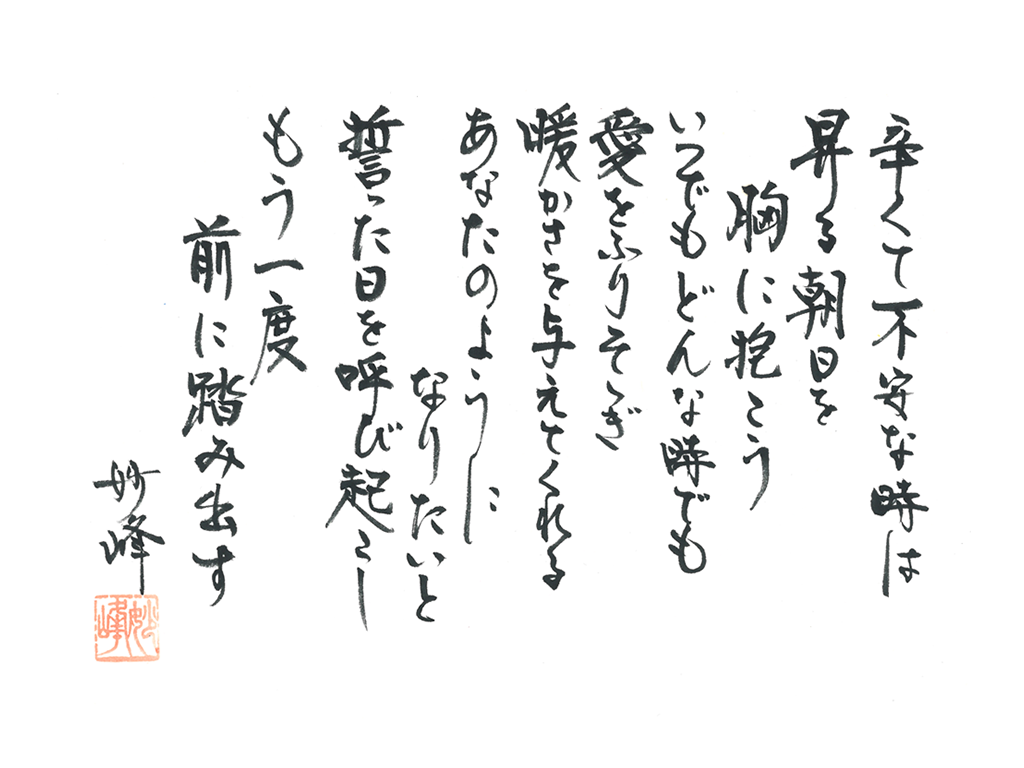 辛くて不安な時は
昇る朝日を
胸に抱こう
いつでもどんな時でも
愛をふりそゝぎ
暖かさを与えてくれる
あなたのように
なりたいと
誓った日を呼び起こし
もう一度
前に踏み出す
妙峰
妙峰